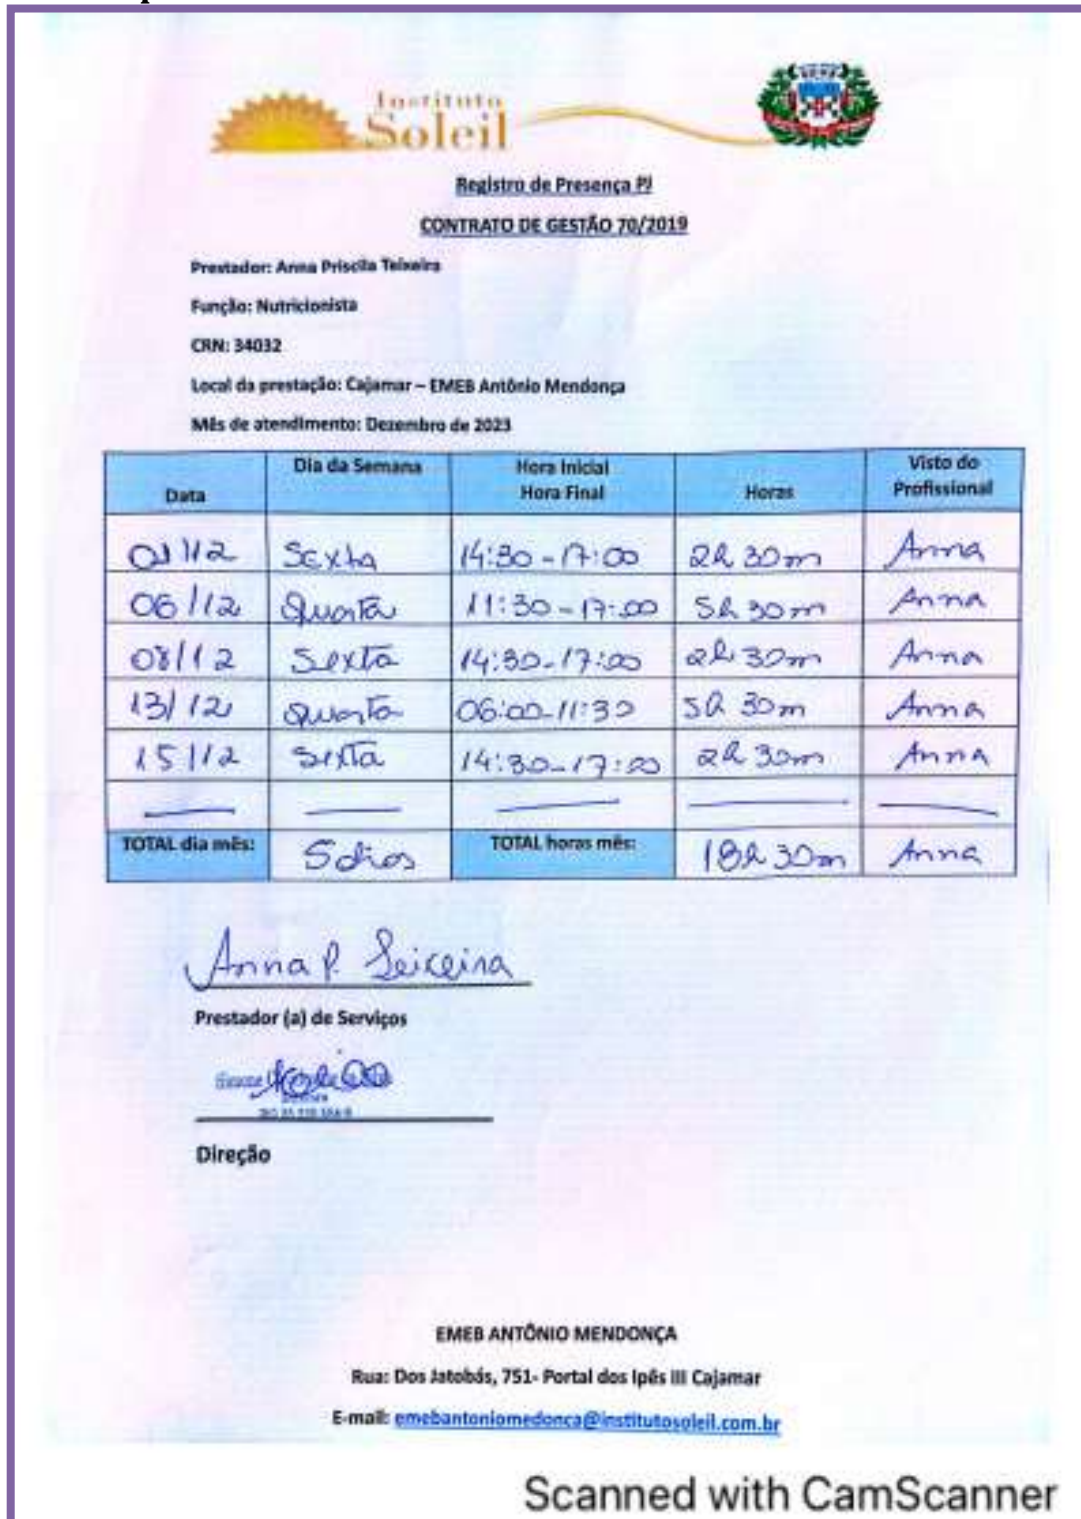 Instituto
Soleil
Registro de Presença PJ
CONTRATO DE GESTÃO 70/2019
Prestador: Anna Priscila Teixeira
Função: Nutricionista
CRN: 34032
Local da prestação: Cajamar – EMEB Antônio Mendonça
Mês de atendimento: Dezembro de 2023
Data Dia da Semana Hora Inicial Hora Final Horas Visto do Profissional
01/12 Sexta 14:30-17:00 2h 30m Anna
06/12 Quarta 11:30-17:00 5h 30m Anna
08/12 Sexta 14:30-17:00 2h 30m Anna
13/12 Quarta 06:00-11:30 5h 30m Anna
15/12 Sexta 14:30-17:00 2h 30m Anna
TOTAL dia mês: 5 dias TOTAL horas mês: 18h 30m Anna
Anna P. Teixeira
Prestador (a) de Serviços
Direção
EMEB ANTÔNIO MENDONÇA
Rua: Dos Jatobás, 751- Portal dos Ipês III Cajamar
E-mail: emebantoniomedonca@institutosoleil.com.br
Scanned with CamScanner